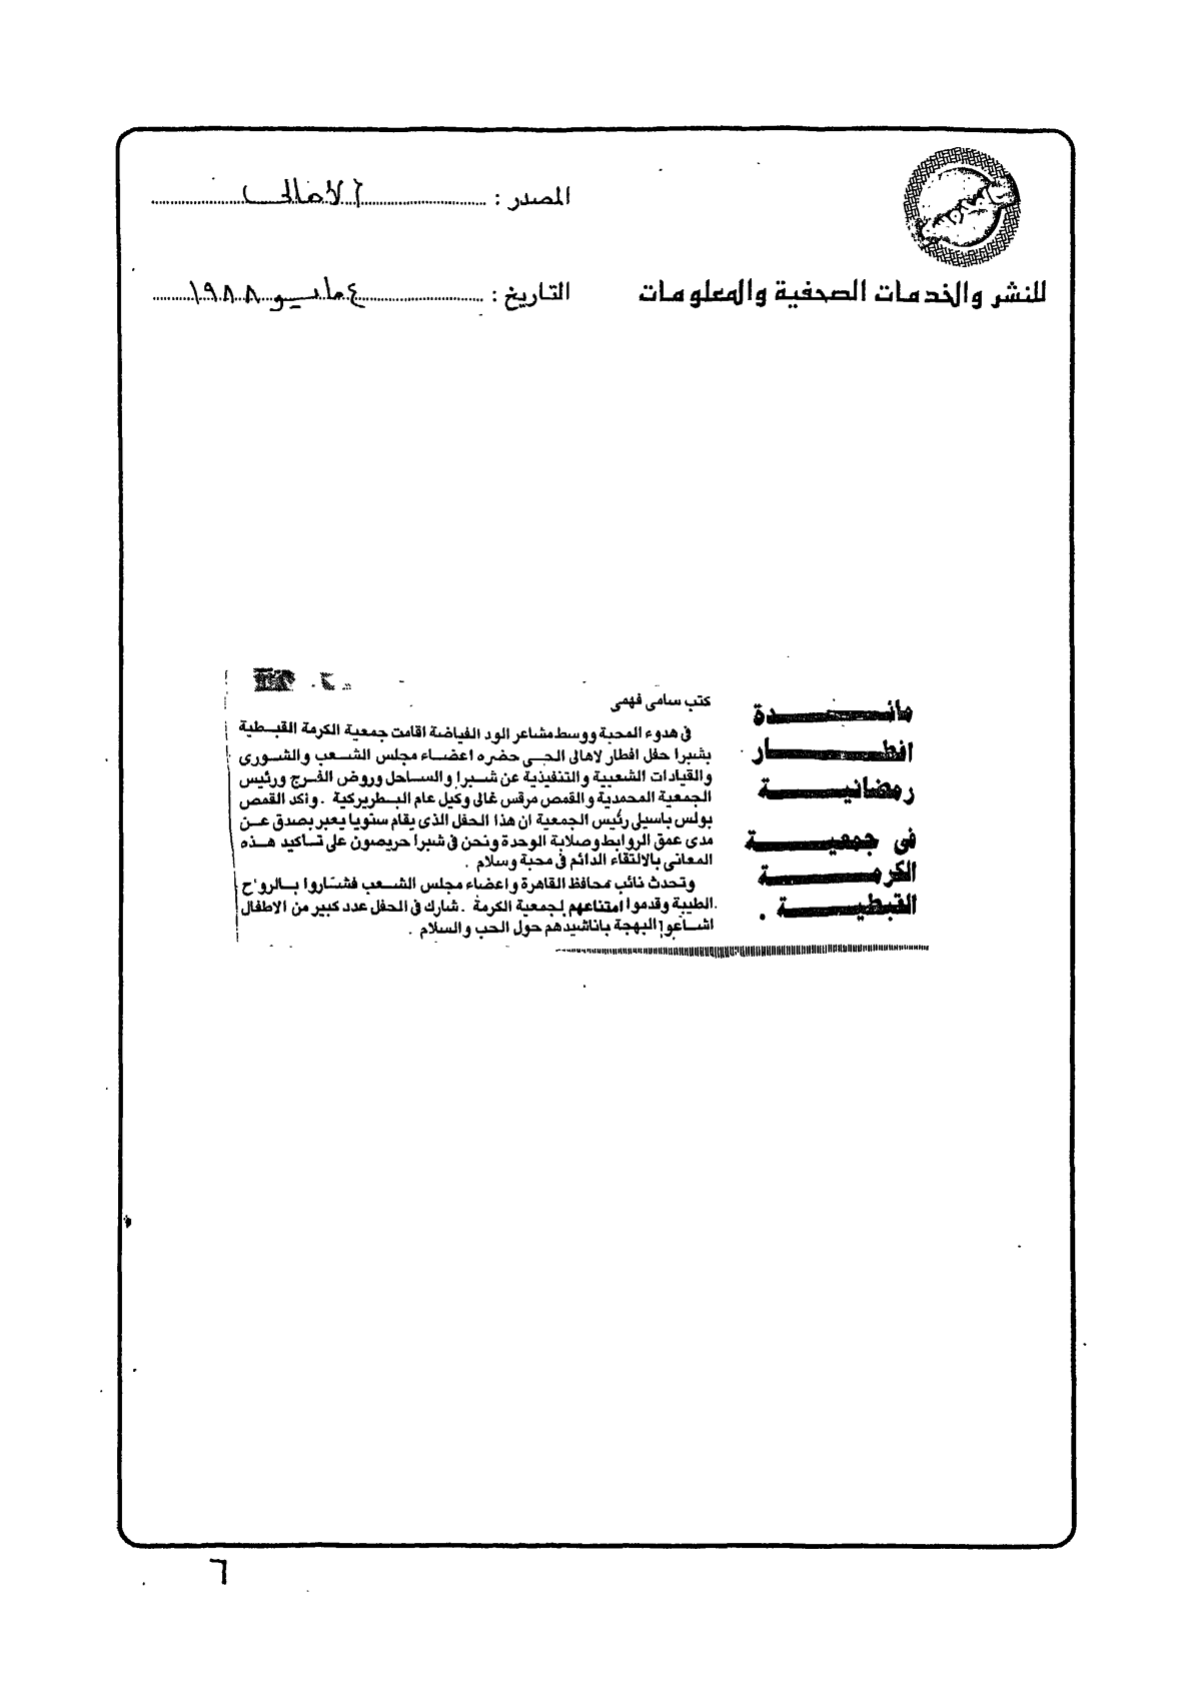 المصدر : الأهالى
للنشر والخدمات الصحفية والمعلومات
التاريخ : ٤ مايو ١٩٨٨
مائدة
افطار
رمضانية
فى جمعية
الكرمة
القبطية .
كتب سامى فهمى
فى هدوء المحبة ووسط مشاعر الود الفياضة اقامت جمعية الكرمة القبطية
بشبرا حفل افطار لاهالى الحى حضره اعضاء مجلس الشعب والشورى
والقيادات الشعبية والتنفيذية عن شبرا والساحل وروض الفرج ورئيس
الجمعية المحمدية و القمص مرقس غالى وكيل عام البطريركية . واكد القمص
بولس باسيلى رئيس الجمعية ان هذا الحفل الذى يقام سنويا يعبر بصدق عن
مدى عمق الروابط وصلابة الوحدة ونحن فى شبرا حريصون على تاكيد هذه
المعانى بالالتقاء الدائم فى محبة وسلام .
وتحدث نائب محافظ القاهرة و اعضاء مجلس الشعب بالروح
الطيبة وقدموا امتناعهم لجمعية الكرمة . شارك فى الحفل عدد كبير من الاطفال
اشاعوا البهجة باناشيدهم حول الحب والسلام .
٦